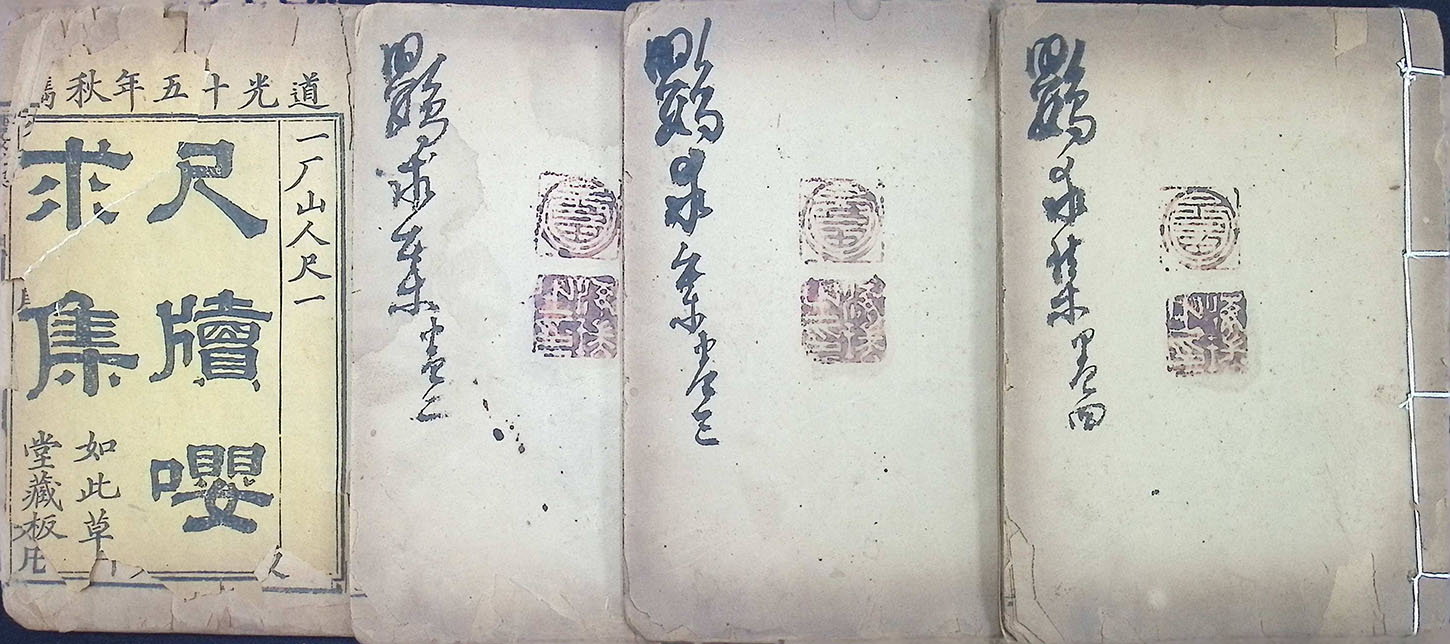 道光十五年秋鐫
一厂山人尺一
尺牘嚶
求集
如此草
堂藏板
鸚求集卷二
鸚求集卷三
鸚求集卷四